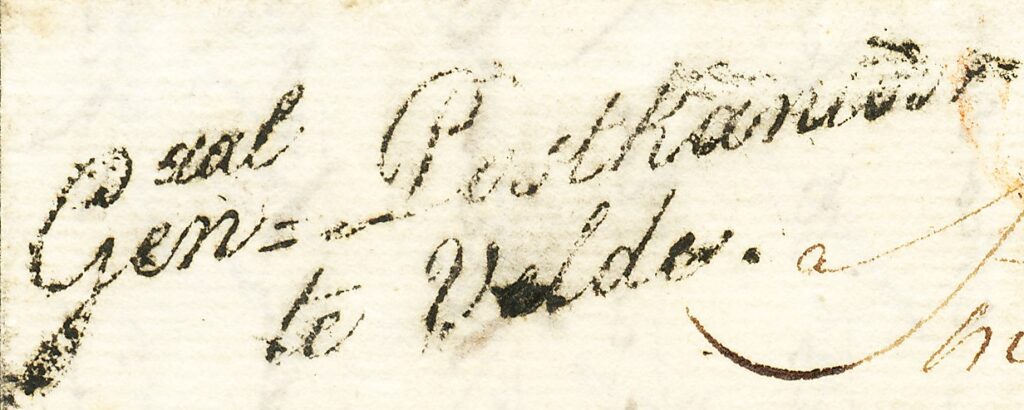 Gen=ral - Postkantoor
te Velde. a